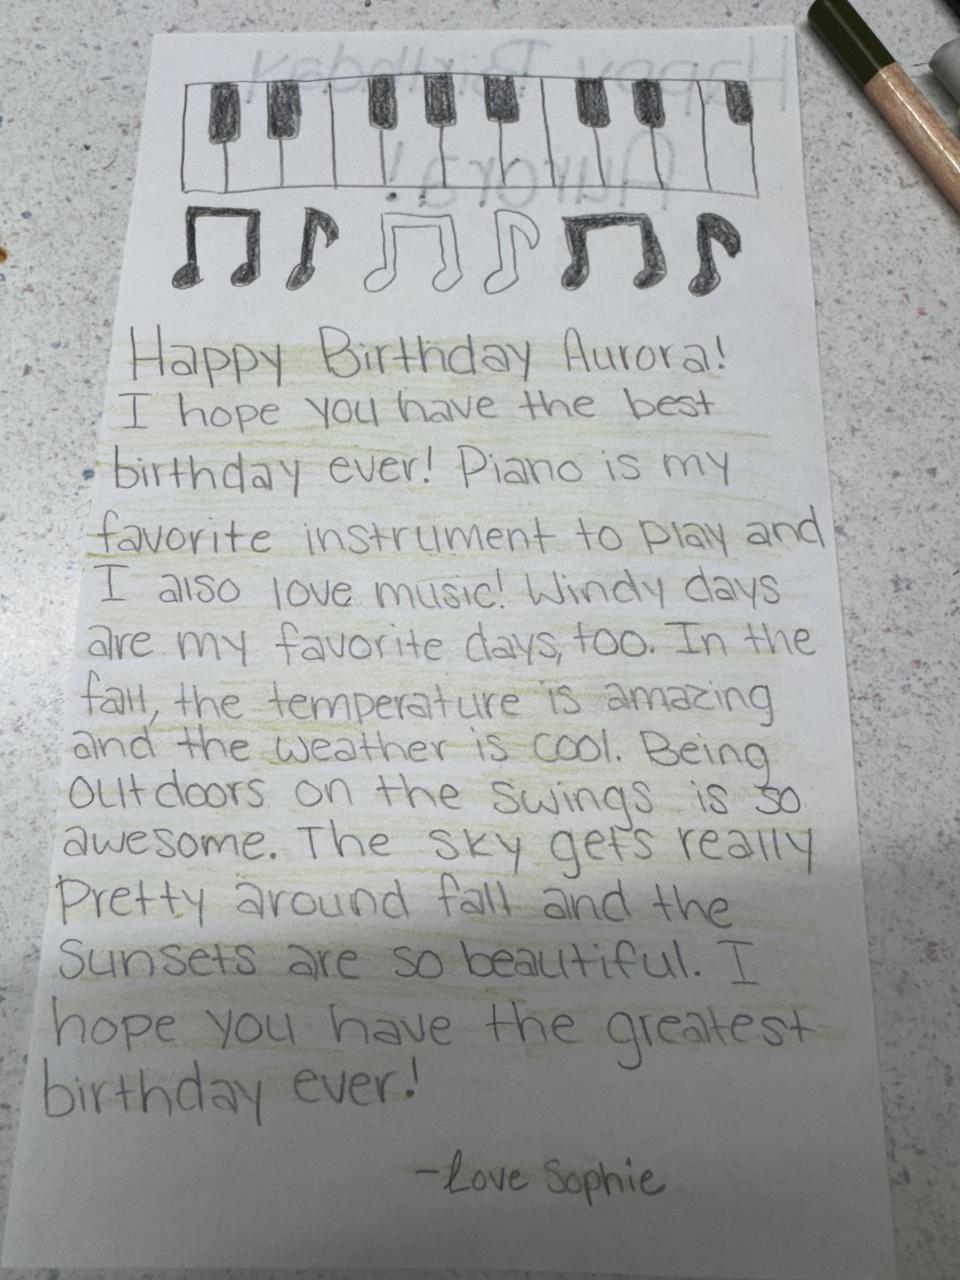 Happy Birthday
Aurora!
Happy Birthday Aurora!
I hope you have the best
birthday ever! Piano is my
favorite instrument to play and
I also love music! Windy days
are my favorite days, too. In the
fall, the temperature is amazing
and the weather is cool. Being
outdoors on the swings is so
awesome. The sky gets really
pretty around fall and the
sunsets are so beautiful. I
hope you have the greatest
birthday ever!
-Love Sophie